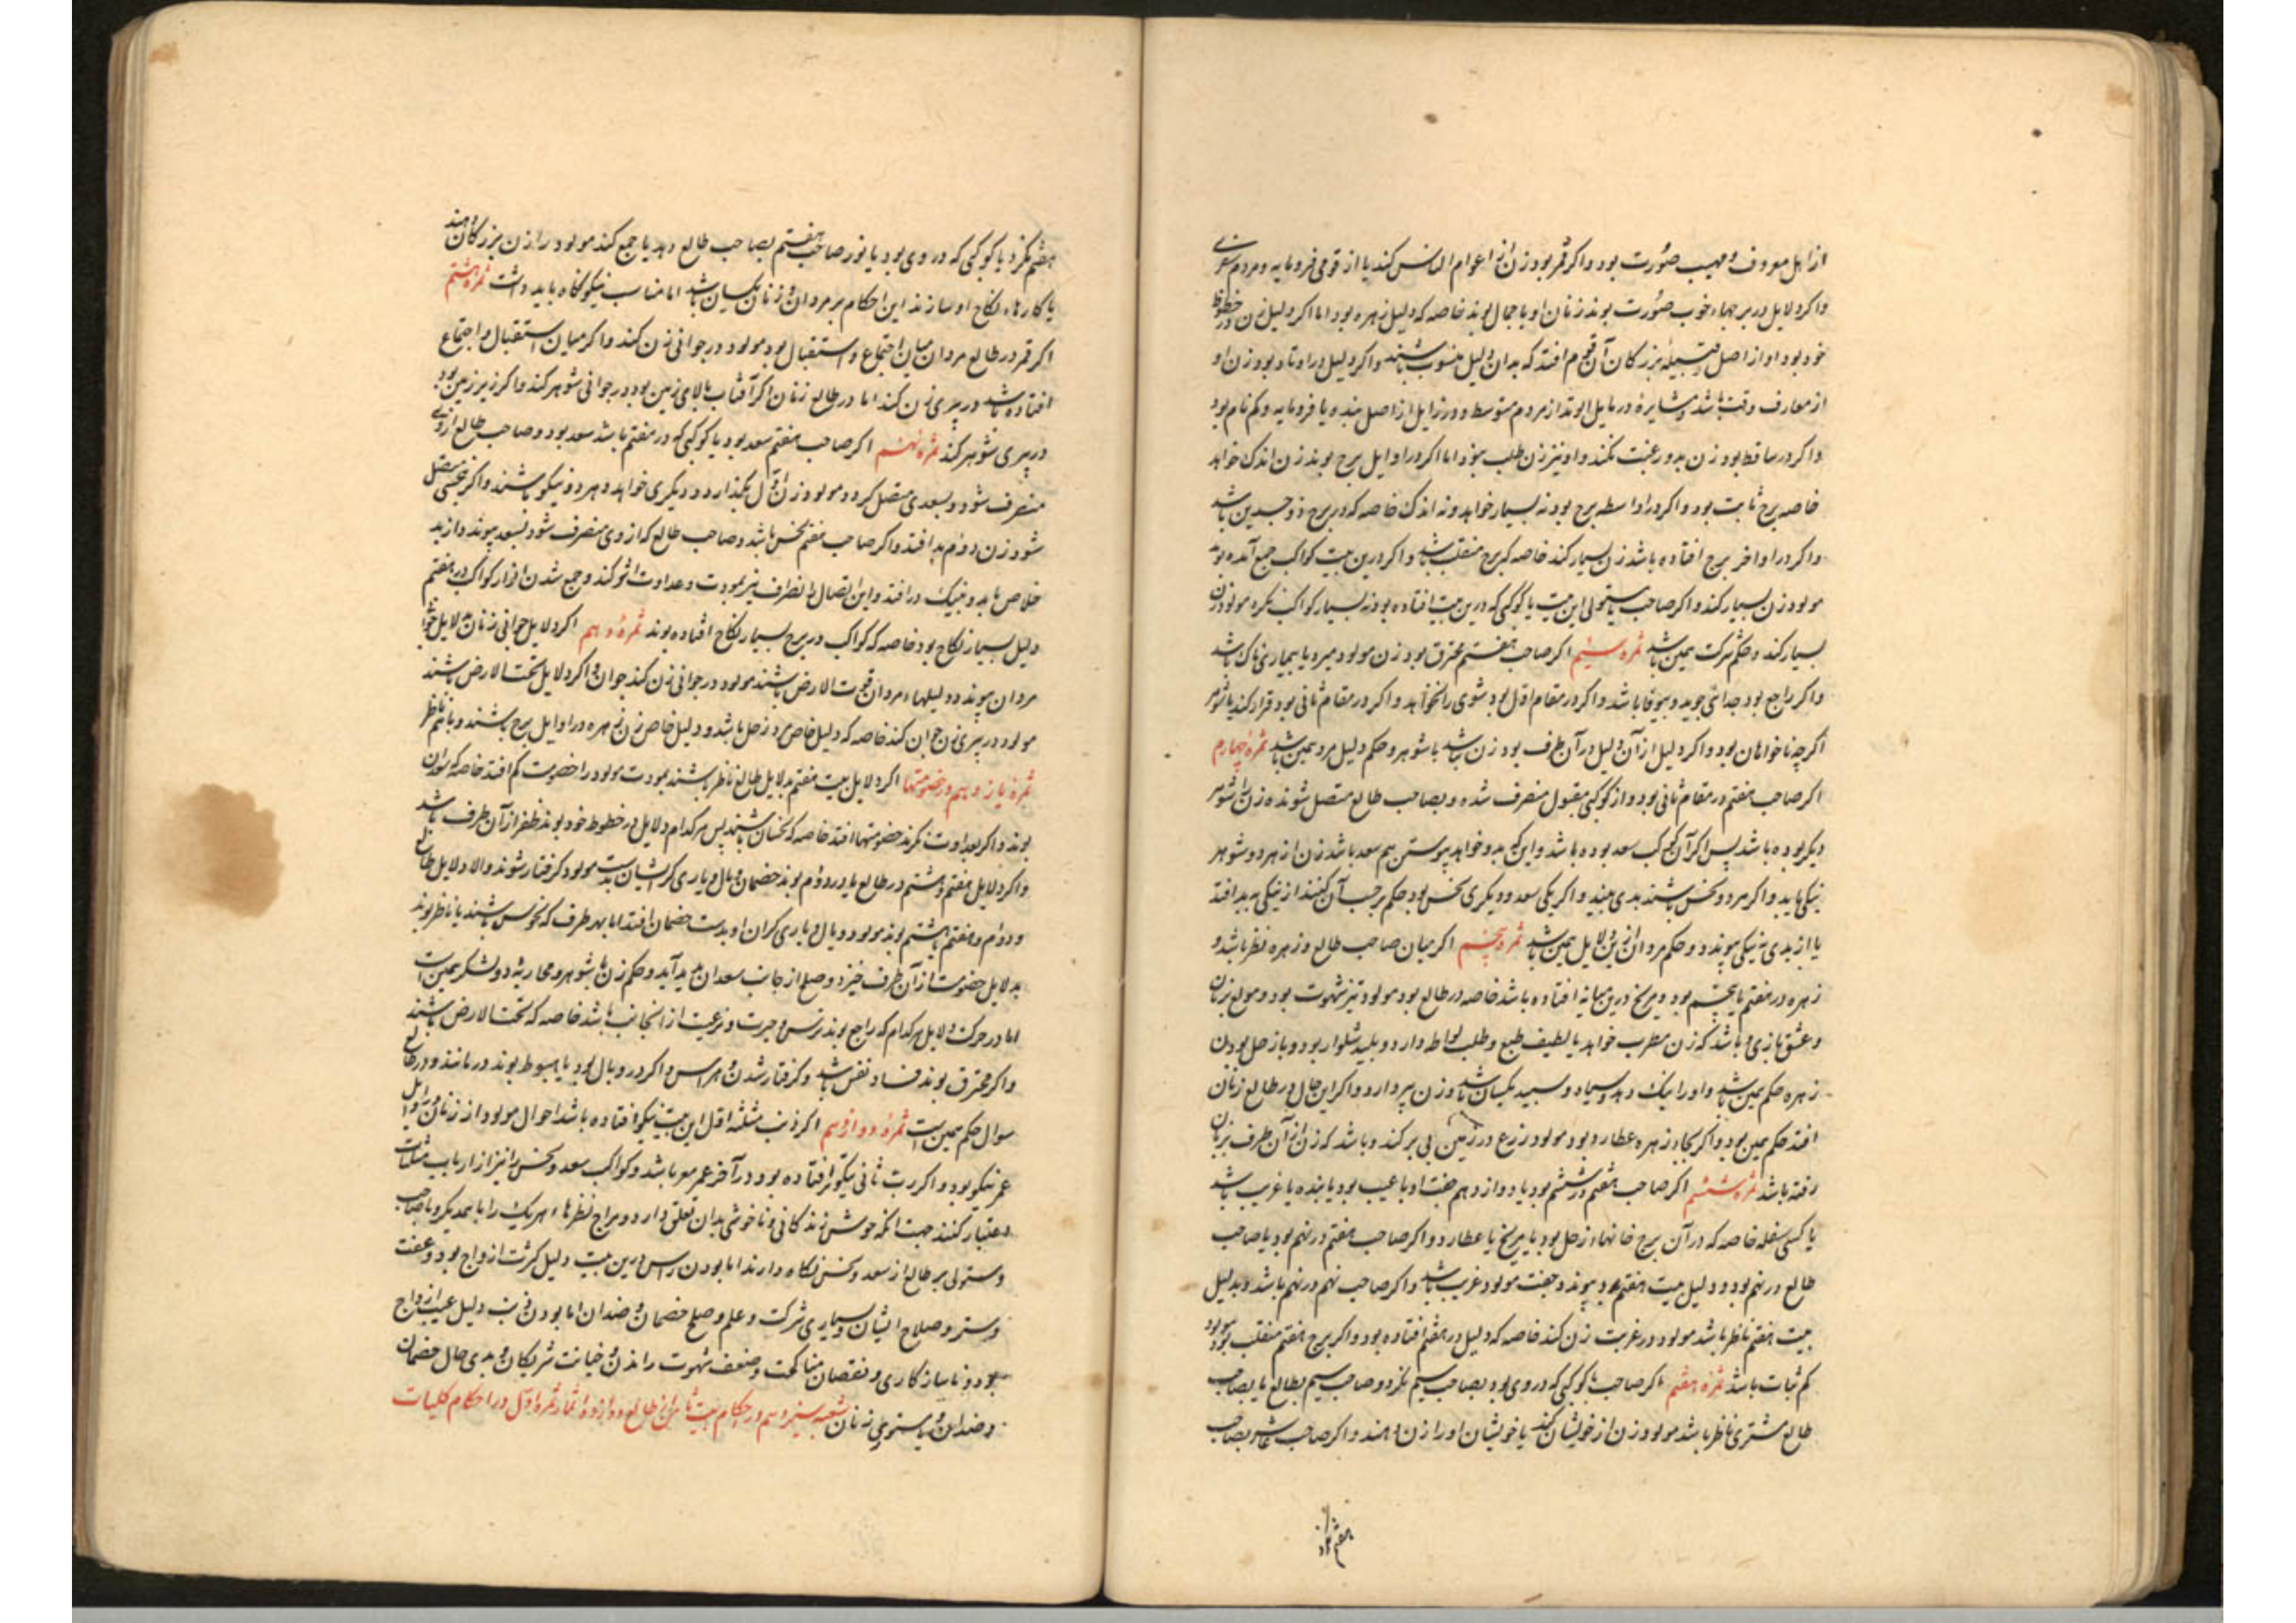 از اهل معروف و مهیب صورت بود و اکر قمر بود زن از اعوام الناس کند یا از قومی فرومایه و مردم
واکر دلایل در برجهاء خوب صورت بوند زنان او با جمال بوند خاصه که دلیل زهره بود اما اکر دلیل زن در خطوط
خود بود او از اصل و قبیله بزرکان آن قوم افتد که بدان دلیل منسوب باشند واکر دلیل در اوتاد بود زن او
از معارف وقت باشد و مشاهیر و در مایل اوتاد از مردم متوسط و در زایل از اصل بنده و یا فرومایه و کم نام بود
واکر در ساقط بود زن بدو رغبت نکند و او نیز زن طلب بود اما اکر در اوایل برج بوند زن اندک خواهد
خاصه برج ثابت بود واکر در اواسط برج بود نه بسیار خواهد و نه اندک خاصه که در برج ذوجسدین باشد
واکر در اواخر برج افتاده باشد زن بسیار کند خاصه که برج منقلب باشد واکر درین بیت کواکب جمع آمده بود
مولود زن بسیار کند واکر صاحب یا مستولی این بیت یا کوکبی که درین بیت افتاده بود به بسیار کواکب نکرد مولود زن
بسیار کند و حکم شرکت همین باشد ثمره سیم اکر صاحب هفتم محترق بود زن مولود میرد یا بیماری ناک باشد
واکر راجع بود جدائی جوید و بیوفا باشد واکر در مقام اول بود شوی را نخواهد واکر در مقام ثانی بود قرار کند با شوهر
اکرچه ناخواهان بود واکر دلیل از آن دلیل در آن طرف بود زن باشد با شوهر و حکم دلیل مرد همین باشد ثمره چهارم
اکر صاحب هفتم در مقام ثانی بود و از کوکبی مقبول منصرف شده و بصاحب طالع متصل شونده زن را شوهر
دیکر بوده باشد پس اکر آن کوکب سعد بوده باشد و این که بدو خواهد پیوستن هم سعد باشد زن از هر دو شوهر
نیکی یابد واکر هر دو نحس باشند بدی بیند واکر یکی سعد و دیکری نحس بود حکم بر حسب آن کنند از نیکی به بد افتد
یا از بدی به نیکی پیوندد و حکم مردان ازین دلایل همین باشد ثمره پنجم اکر میان صاحب طالع و زهره نظر باشد و
زهره در هفتم یا پنجم بود و مریخ درین میانه افتاده باشد خاصه در طالع بود مولود تیز شهوت بود و مولع بزنان
و عشق بازی و باشد که زن مطرب خواهد یا لطیف طبع و طلب لواطه دارد و پلید شلوار بود و با زحل بودن
زهره حکم همین باشد و او را نیک دهد و سیاه و سپید یکسان باشد و زن پیر دارد واکر این حال در طالع زنان
افتد حکم همین بود واکر بجاء زهره عطارد بود مولود زرع در زمین بی بر کند و باشد که زن از آن طرف بزنان
رفته باشد ثمره ششم اکر صاحب هفتم در ششم بود یا دوازدهم جفت او با عیب بود یا بنده یا غریب باشد
یا کسی سفله خاصه که در آن برج خانهاء زحل بود یا مریخ یا عطارد واکر صاحب هفتم در نهم بود یا صاحب
طالع در نهم بود و دلیل بیت هفتم بدو پیوندد جفت مولود غریب باشد واکر صاحب نهم در نهم باشد و بدلیل
بیت هفتم ناظر باشد مولود در غربت زن کند خاصه که دلیل در هفتم افتاده بود واکر برج هفتم منقلب بود مولود
کم ثبات باشد ثمره هفتم اکر صاحب یا کوکبی که در وی بود بصاحب سیم نکرد و صاحب سیم بطالع یا بصاحب
طالع مشتری ناظر باشد مولود زن از خویشان کند یا خویشان او را زن دهند واکر صاحب عاشر بصاحب
هفتم نکرد
هفتم نکرد یا کوکبی که در وی بود یا نور صاحب هفتم بصاحب طالع دهد یا جمع کند مولود را زن بزرکان دهند
یا کارهاء نکاح او سازند این احکام بر مردان و زنان یکسان باشد اما مناسب نیکو نکاه باید داشت ثمره هشتم
اکر قمر در طالع مردان میان اجتماع و استقبال بود مولود در جوانی زن کند واکر میان استقبال و اجتماع
افتاده باشد در پیری زن کند اما در طالع زنان اکر آفتاب بالای زمین بود در جوانی شوهر کند واکر زیر زمین بود
در پیری شوهر کند ثمره نهم اکر صاحب هفتم سعد بود یا کوکبی که در هفتم باشد سعد بود و صاحب طالع از وی
منصرف شود و بسعدی متصل کردد مولود زن اول بکذارد و دیکری خواهد و هر دو نیکو باشند واکر بنحسی متصل
شود زن دوم بد افتد واکر صاحب هفتم نحس باشد و صاحب طالع که از وی منصرف شود بسعد پیوندد از بد
خلاص یابد و بنیک در افتد و این اتصال و انصراف نیز بمودت و عداوت اثر کند و جمع شدن انوار کواکب در هفتم
دلیل بسیار نکاح بود خاصه که کواکب در برج بسیار نکاح افتاده بوند ثمره دهم اکر دلایل جوانی زنان به لایل
مردان پیوند و دلیلهاء مردان فوق الارض باشند مولود در جوانی زن کند جوان واکر دلایل تحت الارض باشند
مولود در پیری زن جوان کند خاصه که دلیل خاص مرد زحل باشد و دلیل خاص زن زهره در اوایل برج باشند و با هم ناظر
ثمره یازدهم در خصومتها اکر دلایل بیت هفتم بدلایل طالع ناظر باشند بمودت مولود را خصومت کم افتد خاصه که سعدان
بوند واکر بعداوت نکرند خصومتها افتد خاصه که نحسان باشند پس هر کدام دلایل در خطوط خود بوند ظفر از آن طرف باشد
واکر دلایل هفتم و هشتم در طالع یا در دوم بوند خصمان و مال و یاری کر ایشان بدست مولود کرفتار شوند والا دلایل طالع
و دوم در هفتم یا هشتم بوند مولود و مال و یاری کران او بدست خصمان افتد اما بهر طرف که نحوس باشند یا ناظر بوند
بدلایل خصومت از آن طرف خیزد و صلح از جانب سعدان پدید آید و حکم زن با شوهر و محاربه دو لشکر همین است
اما در حرکت دلایل هر کدام که راجع بوند ترس و حیرت و هزیمت از آنجانب باشد خاصه که تحت الارض باشند
واکر محترق بوند فساد نفس باشد و کرفتار شدن و هراس واکر در وبال بود یا هبوط بوند درمانند و در طالع
سوال حکم همین است ثمره دوازدهم اکر رب مثلثه اول این بیت نیکو افتاده باشد احوال مولود از زنان در اوایل
عمر نیکو بود واکر رب ثانی نیکو تر افتاده بود در آخر عمر بهتر باشد و کواکب سعد و نحس را نیز از ارباب مثلثات
اعتبار کنند جهت آنکه خوش زندکانی و ناخوشی بدان تعلق دارد و مزاج نظرهاء هر یک را با همدیکر و با صاحب
و مستولی بر طالع از سعد و نحس نکاه دارند اما بودن راس درین بیت دلیل کثرت ازواج بود و عفت
و ستر و صلاح ایشان و بسیاری شرکت و علم و صلح خصمان و ضدان اما بودن ذنب دلیل عیب ازواج
بود و ناسازکاری و نقصان مناکحت و ضعف شهوت راندن و خیانت شریکان و بدی حال خصمان
و ضدان زنان شعبه سیزدهم در احکام بیت ثامن از طالع و دوازده اثمار ثمره اول در احکام کلیات